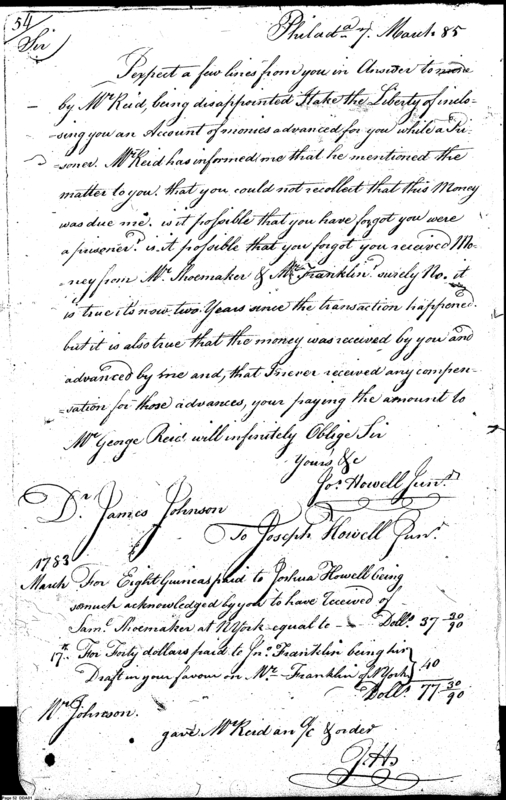 54
Philada 7. March 85
Sir
I expect a few lines from you in Answer to
by Mr. Reid, being disappointed I take the Liberty of inclo-
sing you an Account of monies advanced for you while a Pri-
soner. Mr. Reid has informed me that he mentioned the
matter to you. that you could not recollect that this Money
was due me. is it possible that you have forgot you were
a prisoner? is it possible that you forgot you received Mo-
ney from Mr. Shoemaker & Mr. Franklin? surely No. it
is true its now two Years since the transaction happened.
but it is also true that the money was received by you and
advanced by me and, that I never received any compen-
sation for those advances, your paying the amount to
Mr. George Reid will infinitely Oblige Sir
Yours &c
Jos. Howell Junr.
Dr. James Johnson
To Joseph Howell Junr.
1783
March For Eight Guineas paid to Joshua Howell being
so much acknowledged by you to have received of
Saml. Shoemaker at N York equal to — Dolls. 37 30/90
17th. For Forty dollars paid to Jno. Franklin being his
Draft in your favour on Mr. Franklin of N York } 40
Dolls. 77 30/90
Mr. Johnson.
gave Mr. Reid an a/c & order
J. H.
Page 52 DDA01